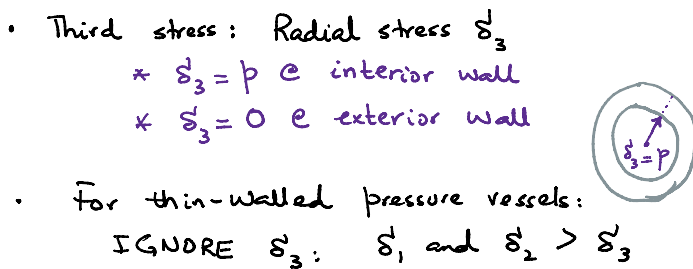 • Third stress: Radial stress σ₃
* σ₃ = p @ interior wall
* σ₃ = 0 @ exterior wall
σ₃ = p
• For thin-walled pressure vessels:
IGNORE σ₃: σ₁ and σ₂ > σ₃